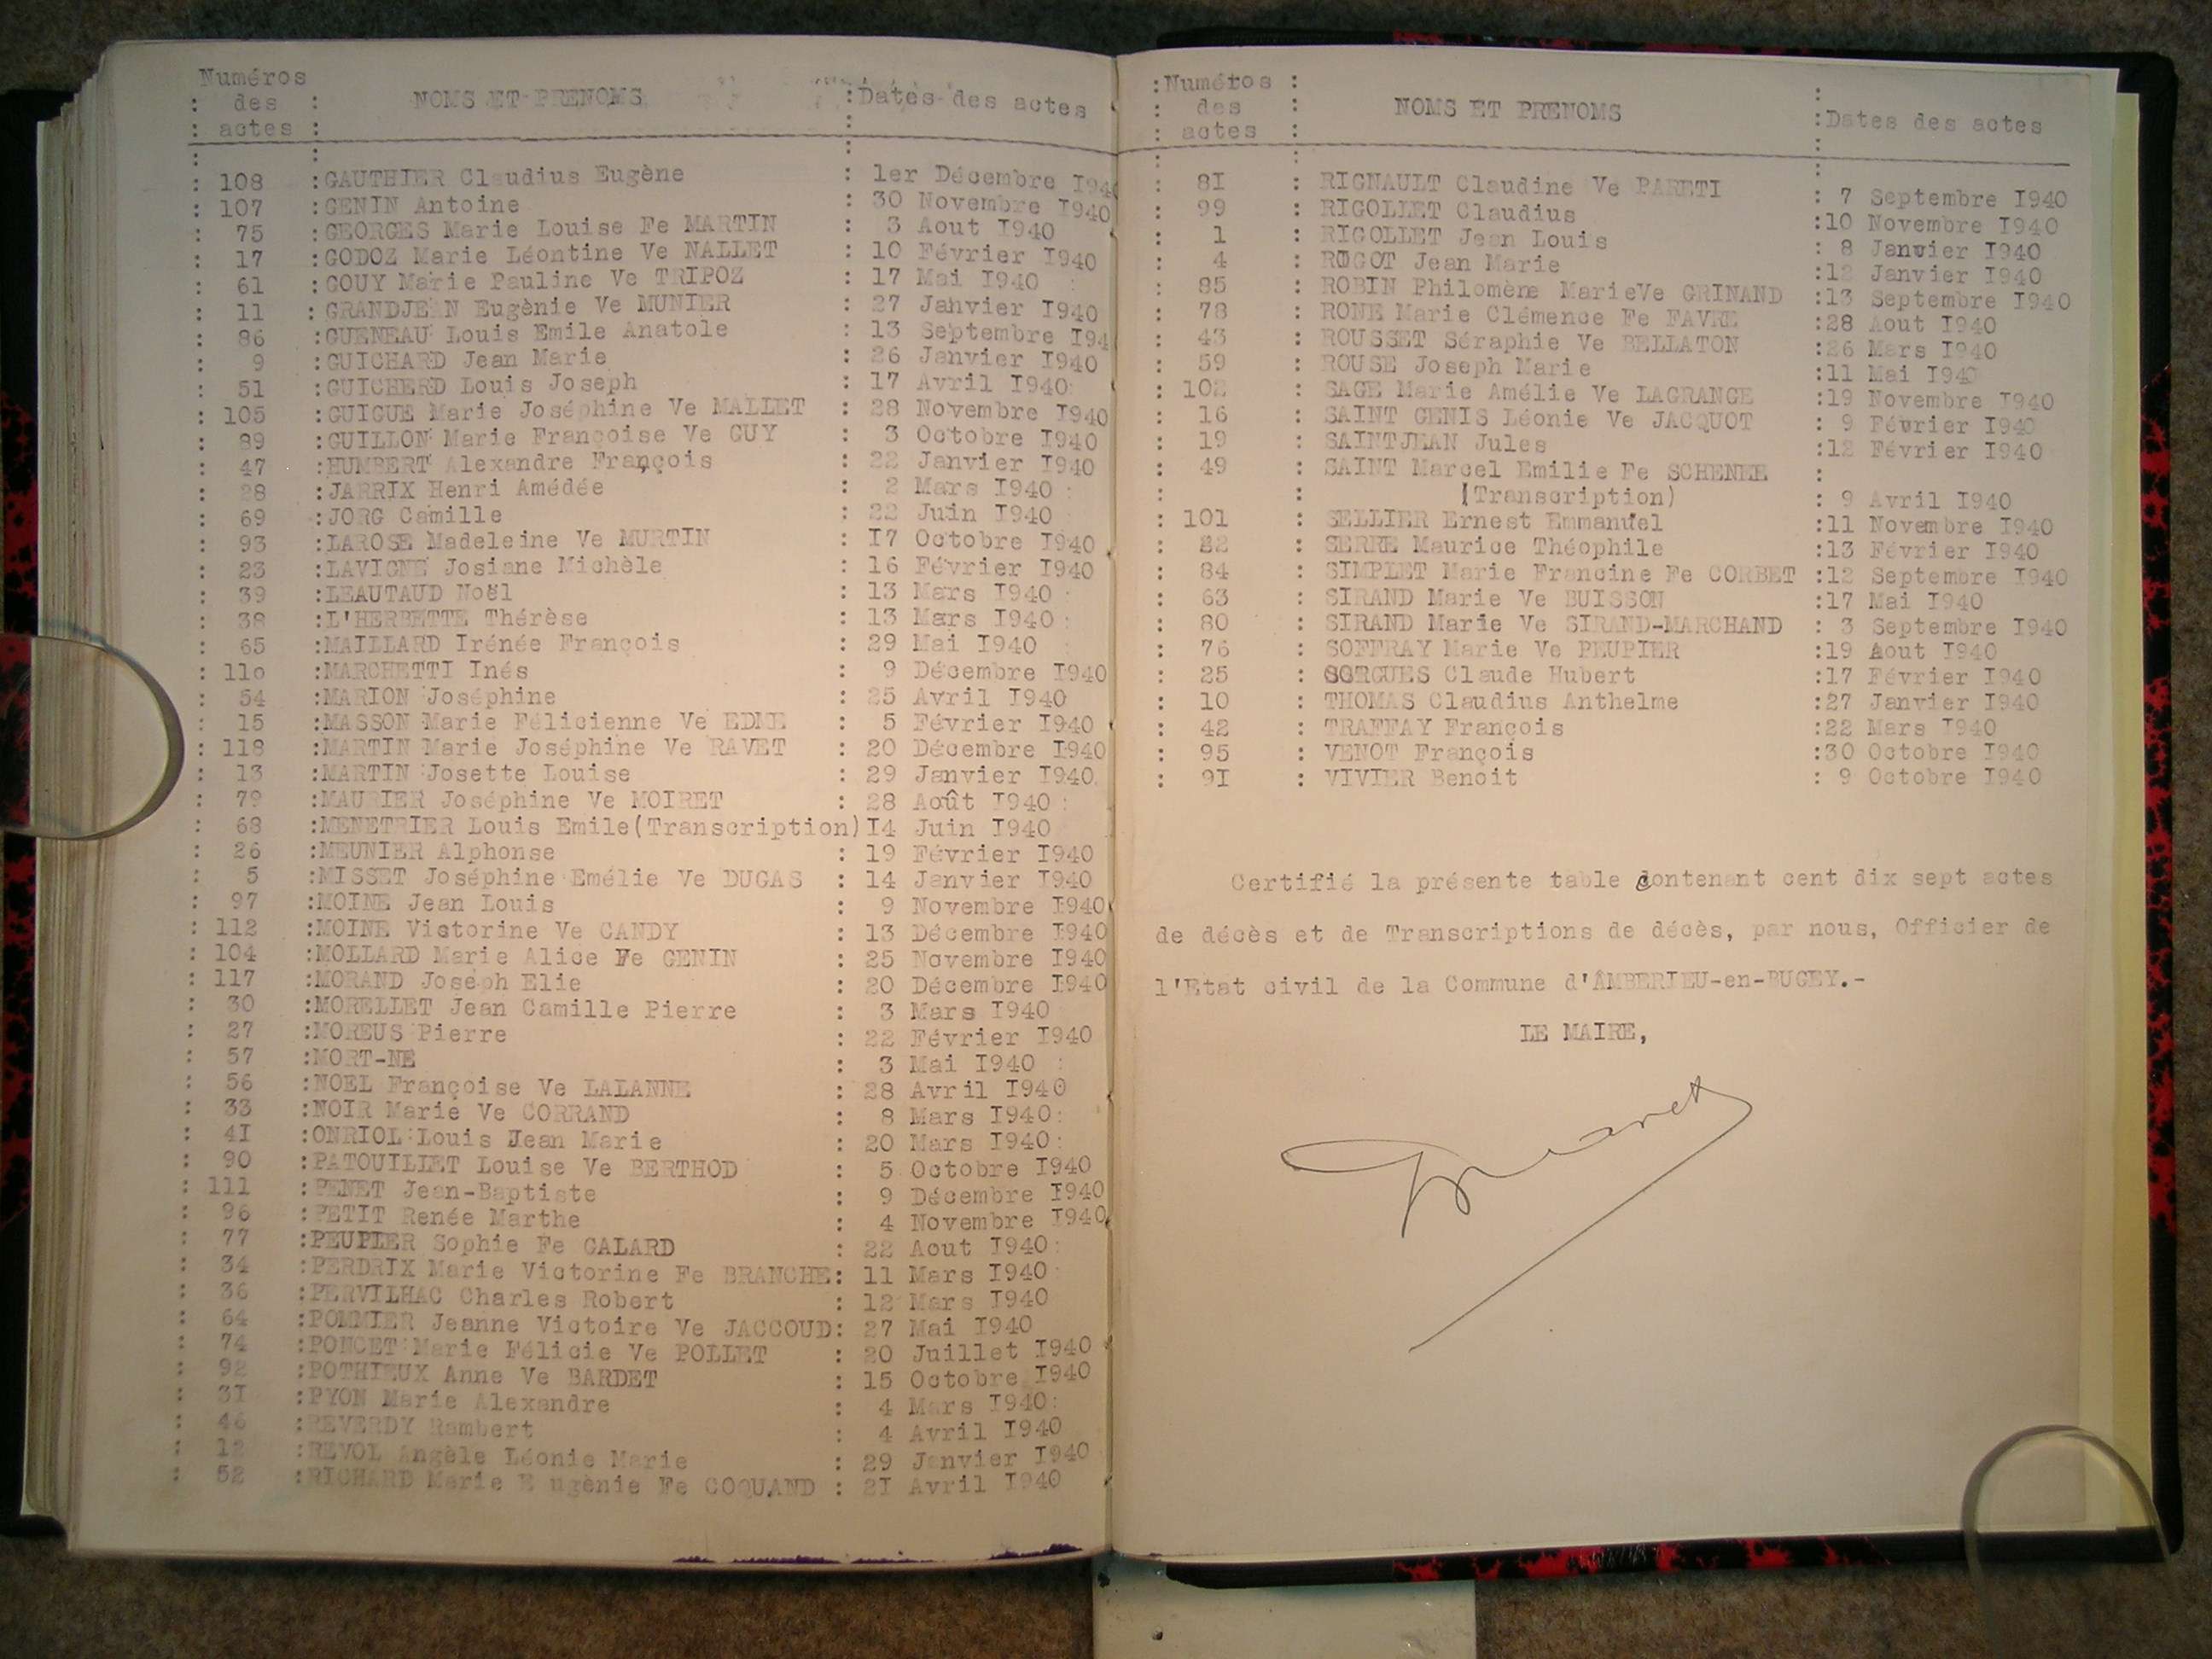 Numéros
: des : NOMS ET PRENOMS :Dates des actes
: actes :
: 108 :GAUTHIER Claudius Eugène : 1er Décembre I940
: 107 :GENIN Antoine : 30 Novembre I940
: 75 :GEORGES Marie Louise Fe MARTIN : 3 Aout I940
: 17 :GODOZ Marie Léontine Ve NALLET : 10 Février I940
: 61 :GOUY Marie Pauline Ve TRIPOZ : 17 Mai I940
: 11 :GRANDJEAN Eugènie Ve MUNIER : 27 Jahvier I940
: 86 :GUENEAU Louis Emile Anatole : 13 Septembre I94
: 9 :GUICHARD Jean Marie : 26 Janvier I940
: 51 :GUICHERD Louis Joseph : 17 Avril I940
: 105 :GUIGUE Marie Joséphine Ve MALLET : 28 Novembre I940
: 89 :GUILLON Marie Françoise Ve GUY : 3 Octobre I940
: 47 :HUMBERT Alexandre François : 22 Janvier I940
: 28 :JARRIX Henri Amédée : 2 Mars I940
: 69 :JORG Camille : 22 Juin I940
: 93 :LAROSE Madeleine Ve MURTIN : I7 Octobre I940
: 23 :LAVIGNE Josiane Michèle : 16 Février I940
: 39 :LEAUTAUD Noël : 13 Mars I940
: 38 :L'HERBETTE Thérèse : 13 Mars I940
: 65 :MAILLARD Irénée François : 29 Mai I940
: 11o :MARCHETTI Inés : 9 Décembre I940
: 54 :MARION Joséphine : 25 Avril I940
: 15 :MASSON Marie Félicienne Ve EDME : 5 Février I940
: 118 :MARTIN Marie Joséphine Ve RAVET : 20 Décembre I940
: 13 :MARTIN Josette Louise : 29 Janvier I940
: 79 :MAURIER Joséphine Ve MOIRET : 28 Août I940
: 68 :MENETRIER Louis Emile(Transcription)I4 Juin I940
: 26 :MEUNIER Alphonse : 19 Février I940
: 5 :MISSET Joséphine Emélie Ve DUGAS : 14 Janvier I940
: 97 :MOINE Jean Louis : 9 Novembre I940
: 112 :MOINE Victorine Ve CANDY : 13 Décembre I940
: 104 :MOLLARD Marie Alice Fe GENIN : 25 Novembre I940
: 117 :MORAND Joseph Elie : 20 Décembre I940
: 30 :MORELLET Jean Camille Pierre : 3 Mars I940
: 27 :MOREUS Pierre : 22 Février I940
: 57 :MORT-NE : 3 Mai I940
: 56 :NOEL Françoise Ve LALANNE : 28 Avril I940
: 33 :NOIR Marie Ve CORRAND : 8 Mars I940
: 4I :ONRIOL Louis Jean Marie : 20 Mars I940
: 90 :PATOUILLET Louise Ve BERTHOD : 5 Octobre I940
: 111 :PENET Jean-Baptiste : 9 Décembre I940
: 96 :PETIT Renée Marthe : 4 Novembre I940
: 77 :PEUPIER Sophie Fe CALARD : 22 Aout I940
: 34 :PERDRIX Marie Victorine Fe BRANCHE: 11 Mars I940
: 36 :PERVILHAC Charles Robert : 12 Mars I940
: 64 :POMMIER Jeanne Victoire Ve JACCOUD: 27 Mai I940
: 74 :PONCET Marie Félicie Ve POLLET : 20 Juillet I940
: 92 :POTHIEUX Anne Ve BARDET : 15 Octobre I940
: 3I :PYON Marie Alexandre : 4 Mars I940
: 46 :REVERDY Rambert : 4 Avril I940
: 12 :REVOL Angèle Léonie Marie : 29 Janvier I940
: 52 :RICHARD Marie E ugènie Fe COQUAND : 2I Avril I940
:Numéros :
: des : NOMS ET PRENOMS :Dates des actes
: actes :
: 8I : RIGNAULT Claudine Ve PARETI : 7 Septembre I940
: 99 : RIGOLLET Claudius :10 Novembre I940
: 1 : RIGOLLET Jean Louis : 8 Janvier I940
: 4 : ROGOT Jean Marie :12 Janvier I940
: 85 : ROBIN Philomène MarieVe GRINAND :13 Septembre I940
: 78 : RONE Marie Clémence Fe FAVRE :28 Aout I940
: 43 : ROUSSET Séraphie Ve BELLATON :26 Mars I940
: 59 : ROUSE Joseph Marie :11 Mai I940
: 102 : SAGE Marie Amélie Ve LAGRANGE :19 Novembre I940
: 16 : SAINT GENIS Léonie Ve JACQUOT : 9 Février I940
: 19 : SAINTJEAN Jules :12 Février I940
: 49 : SAINT Marcel Emilie Fe SCHENEE :
: : (Transcription) : 9 Avril I940
: 101 : SELLIER Ernest Emmanuel :11 Novembre I940
: 22 : SERRE Maurice Théophile :13 Février I940
: 84 : SIMPLET Marie Francine Fe CORBET :12 Septembre I940
: 63 : SIRAND Marie Ve BUISSON :17 Mai I940
: 80 : SIRAND Marie Ve SIRAND-MARCHAND : 3 Septembre I940
: 76 : SOFFRAY Marie Ve PEUPIER :19 Aout I940
: 25 : SORGUES Claude Hubert :17 Février I940
: 10 : THOMAS Claudius Anthelme :27 Janvier I940
: 42 : TRAFFAY François :22 Mars I940
: 95 : VENOT François :30 Octobre I940
: 9I : VIVIER Benoit : 9 Octobre I940
Certifié la présente table contenant cent dix sept actes
de décès et de Transcriptions de décès, par nous, Officier de
l'Etat civil de la Commune d'ÂMBERIEU-en-BUGEY.-
LE MAIRE,